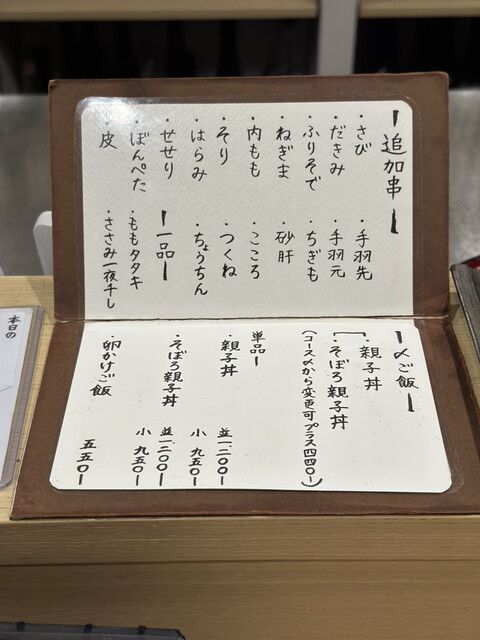 ー追加串ー
・さび
・だきみ
・ふりそで
・ねぎま
・内もも
・そり
・はらみ
・せせり
・ぼんぺた
・皮
・手羽先
・手羽元
・ちぎも
・砂肝
・こころ
・つくね
・ちょうちん
ー一品ー
・ももタタキ
・ささみ一夜干し
ー〆ご飯ー
・親子丼
・そぼろ親子丼
(コース〆から変更可プラス四四〇ー)
単品ー
・親子丼
並一、二〇〇ー
小 九五〇ー
・そぼろ親子丼
並一、二〇〇ー
小 九五〇ー
・卵かけご飯
五五〇ー
本日の